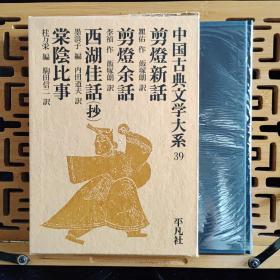 中国古典文学大系 39
剪燈新話
瞿佑 作 飯塚朗 訳
剪燈余話
李禎 作 飯塚朗 訳
西湖佳話(抄)
墨浪子 編 内田道夫 訳
棠陰比事
桂万栄 編 駒田信二 訳
平凡社